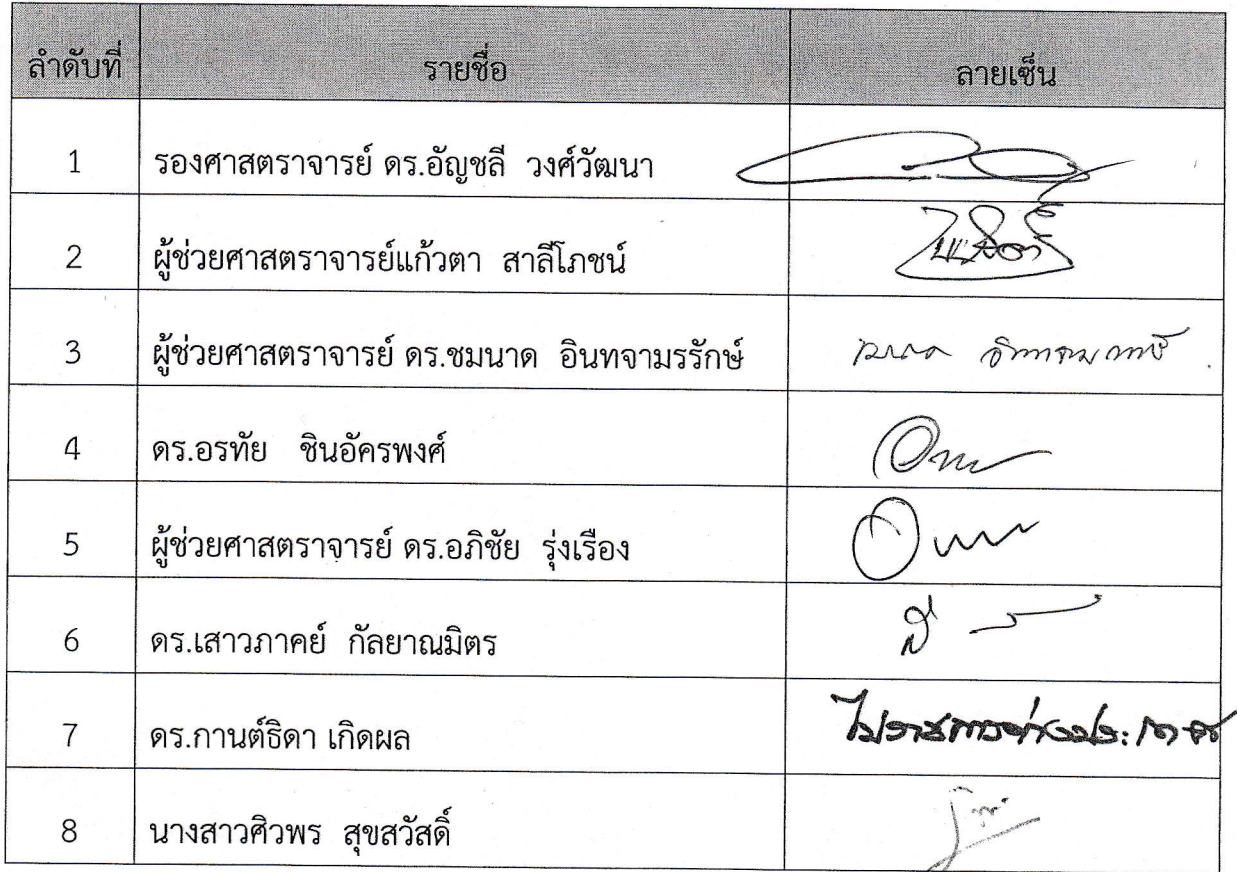 ลำดับที่ รายชื่อ ลายเซ็น
1 รองศาสตราจารย์ ดร.อัญชลี วงศ์วัฒนา
2 ผู้ช่วยศาสตราจารย์แก้วตา สาลีโภชน์
3 ผู้ช่วยศาสตราจารย์ ดร.ชมนาด อินทจามรรักษ์
4 ดร.อรทัย ชินอัครพงศ์
5 ผู้ช่วยศาสตราจารย์ ดร.อภิชัย รุ่งเรือง
6 ดร.เสาวภาคย์ กัลยาณมิตร
7 ดร.กานต์ธิดา เกิดผล ไปราชการต่างประเทศ
8 นางสาวศิวพร สุขสวัสดิ์